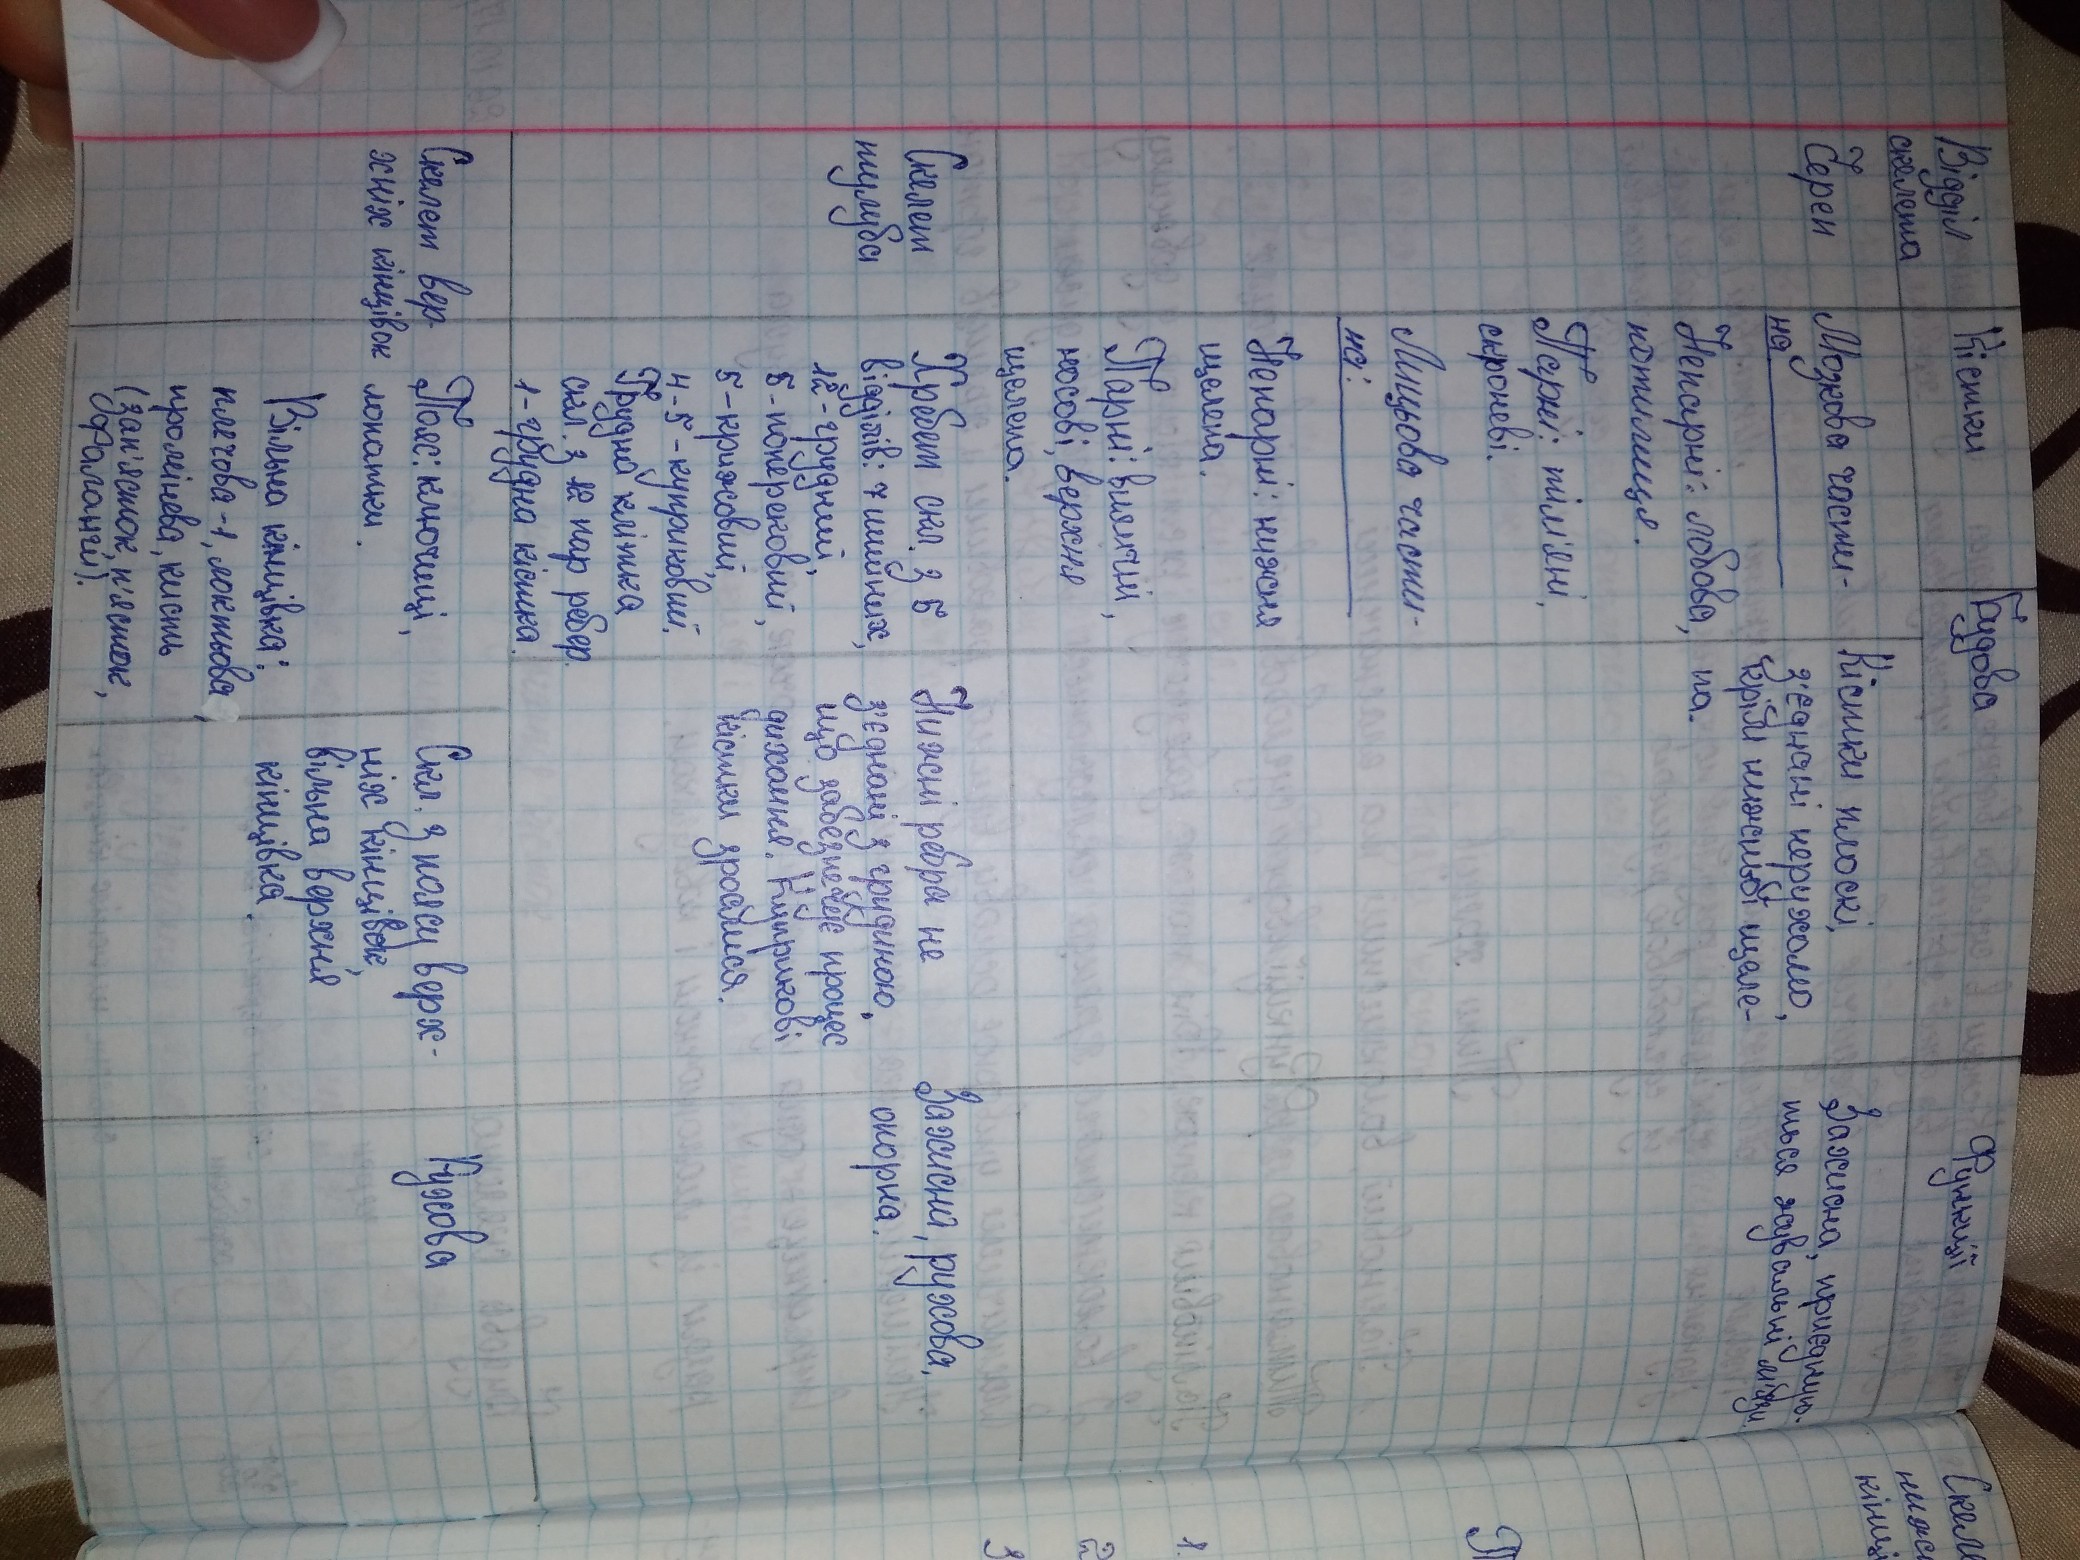 Відділ
скелета
Кістки
Будова
Функції
Череп
Мозкова части-
на
Непарні: лобова,
потилице.
Парні: тім'яні,
скроневі.
Лицьова части-
на:
Непарні: нижня
щелепа.
Парні: виличні,
носові, верхня
щелепа.
Кістки плоскі,
з'єднані нерухомо,
крім нижньої щеле-
па.
Захисна, приєдную-
ться жувальні м'язи
Скелет
тулуба
Хребет скл. з 5
відділів: 7 шийних,
12 - грудний,
5 - поперековий,
5 - крижовий,
4-5 - куприковий.
Грудна клітка
скл. з 12 пар ребер
1 - грудна кістка.
Нижні ребра не
з'єднані з грудиною,
що забезпечує процес
дихання. Куприкові
кістки зрослися.
Захисна, рухова,
опорна.
Скелет вер-
хніх кінцівок
Пояс: ключиці,
лопатки.
Вільна кінцівка:
плечова -1, ліктьова,
променева, кисть
(зап'ясток, п'ясток,
фаланги).
Скл. з поясу верх-
ніх кінцівок,
вільна верхня
кінцівка.
Рухова
Скел
ниж
кінці
П
1.
2
3